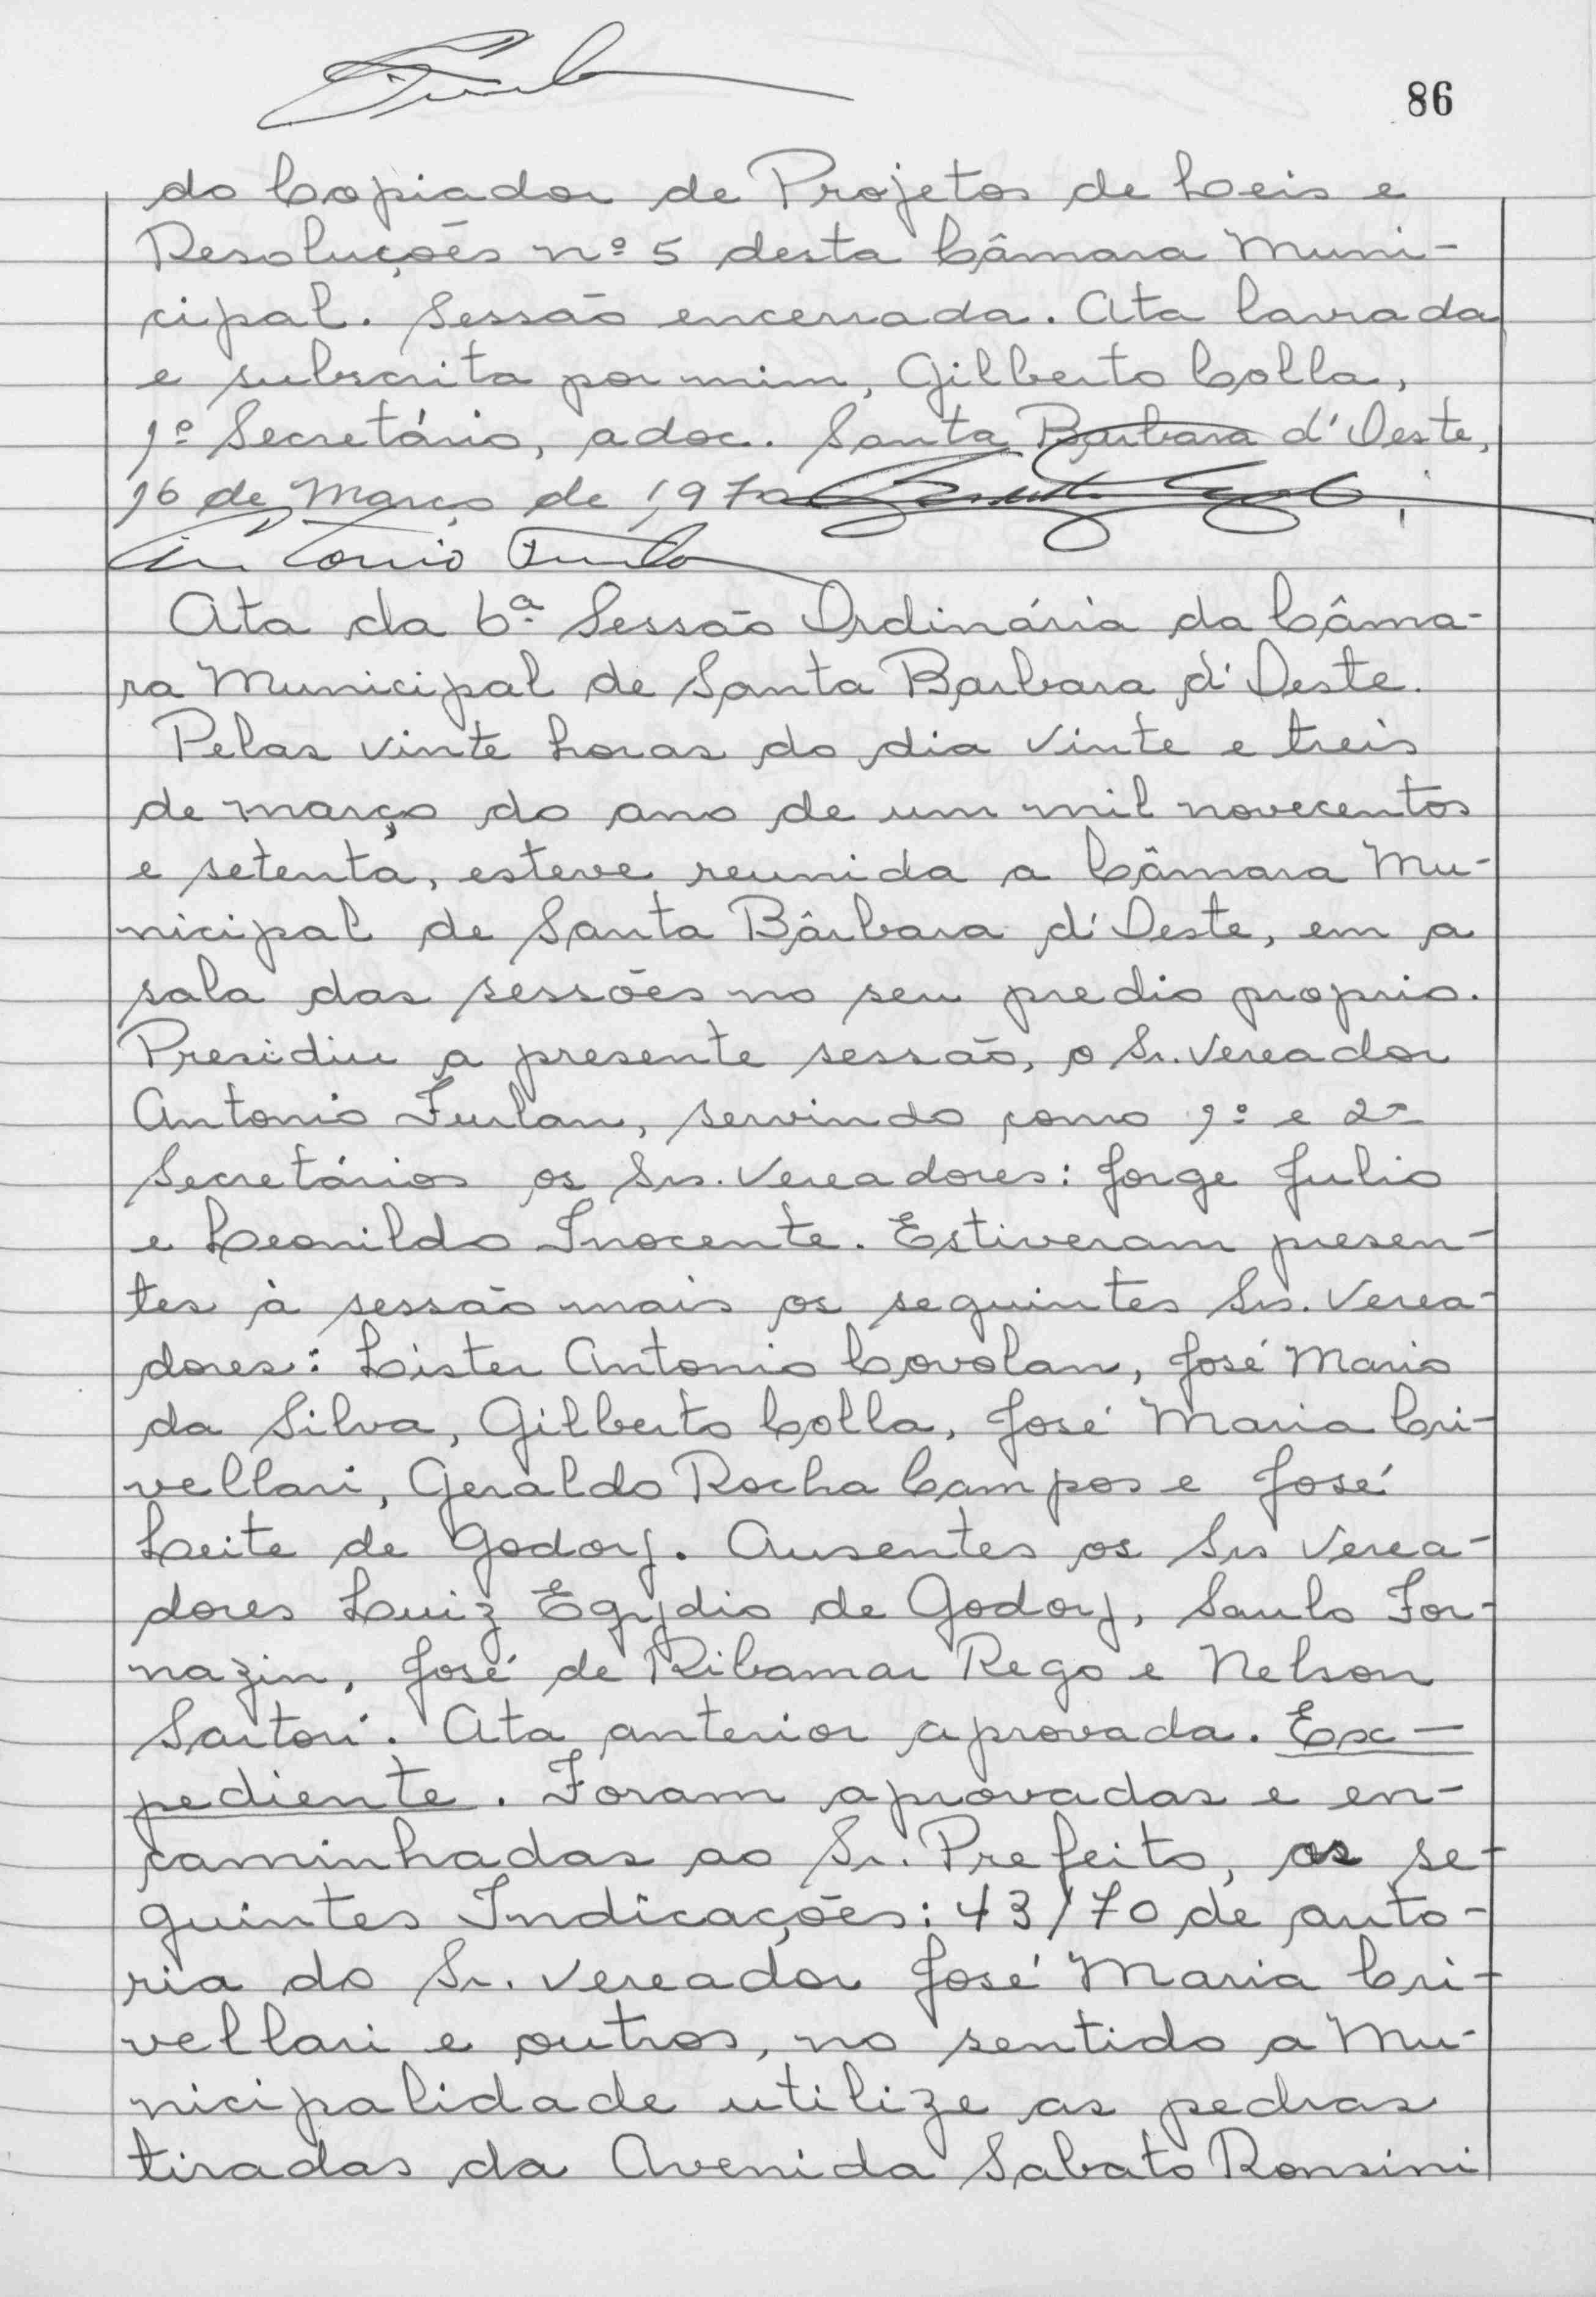 86
do Copiador de Projetos de Leis e
Resoluções nº 5 desta Câmara Muni-
cipal. Sessão encerrada. Ata lavrada
e subscrita por mim, Gilberto Colla,
1º Secretário, adoc. Santa Barbara d'Oeste,
16 de Março de 1,970
Antonio Furlan
Ata da 6ª Sessão Ordinária da Câma-
ra Municipal de Santa Barbara d'Oeste.
Pelas vinte horas do dia vinte e treis
de março do ano de um mil novecentos
e setenta, esteve reunida a Câmara Mu-
nicipal de Santa Bârbara d'Oeste, em a
sala das sessões no seu predio proprio.
Presidiu a presente sessão, o Sr. Vereador
Antonio Furlan, servindo como 1º e 2º
Secretários os Srs. Vereadores: Jorge Julio
e Leonildo Inocente. Estiveram presen-
tes à sessão mais os seguintes Srs. Verea-
dores: Lister Antonio Covolan, José Mario
da Silva, Gilberto Colla, José Maria Cri-
vellari, Geraldo Rocha Campos e José
Leite de Godoy. Ausentes os Srs Verea-
dores Luiz Egydio de Godoy, Saulo For-
nazin, José de Ribamar Rego e Nelson
Sartori. Ata anterior aprovada. Ex-
pediente. Foram aprovadas e en-
caminhadas ao Sr. Prefeito, as se-
guintes Indicações: 43/70 de auto-
ria do Sr. Vereador José Maria Cri-
vellari e outros, no sentido a Mu-
nicipalidade utilize as pedras
tiradas da Avenida Sabato Ronsini